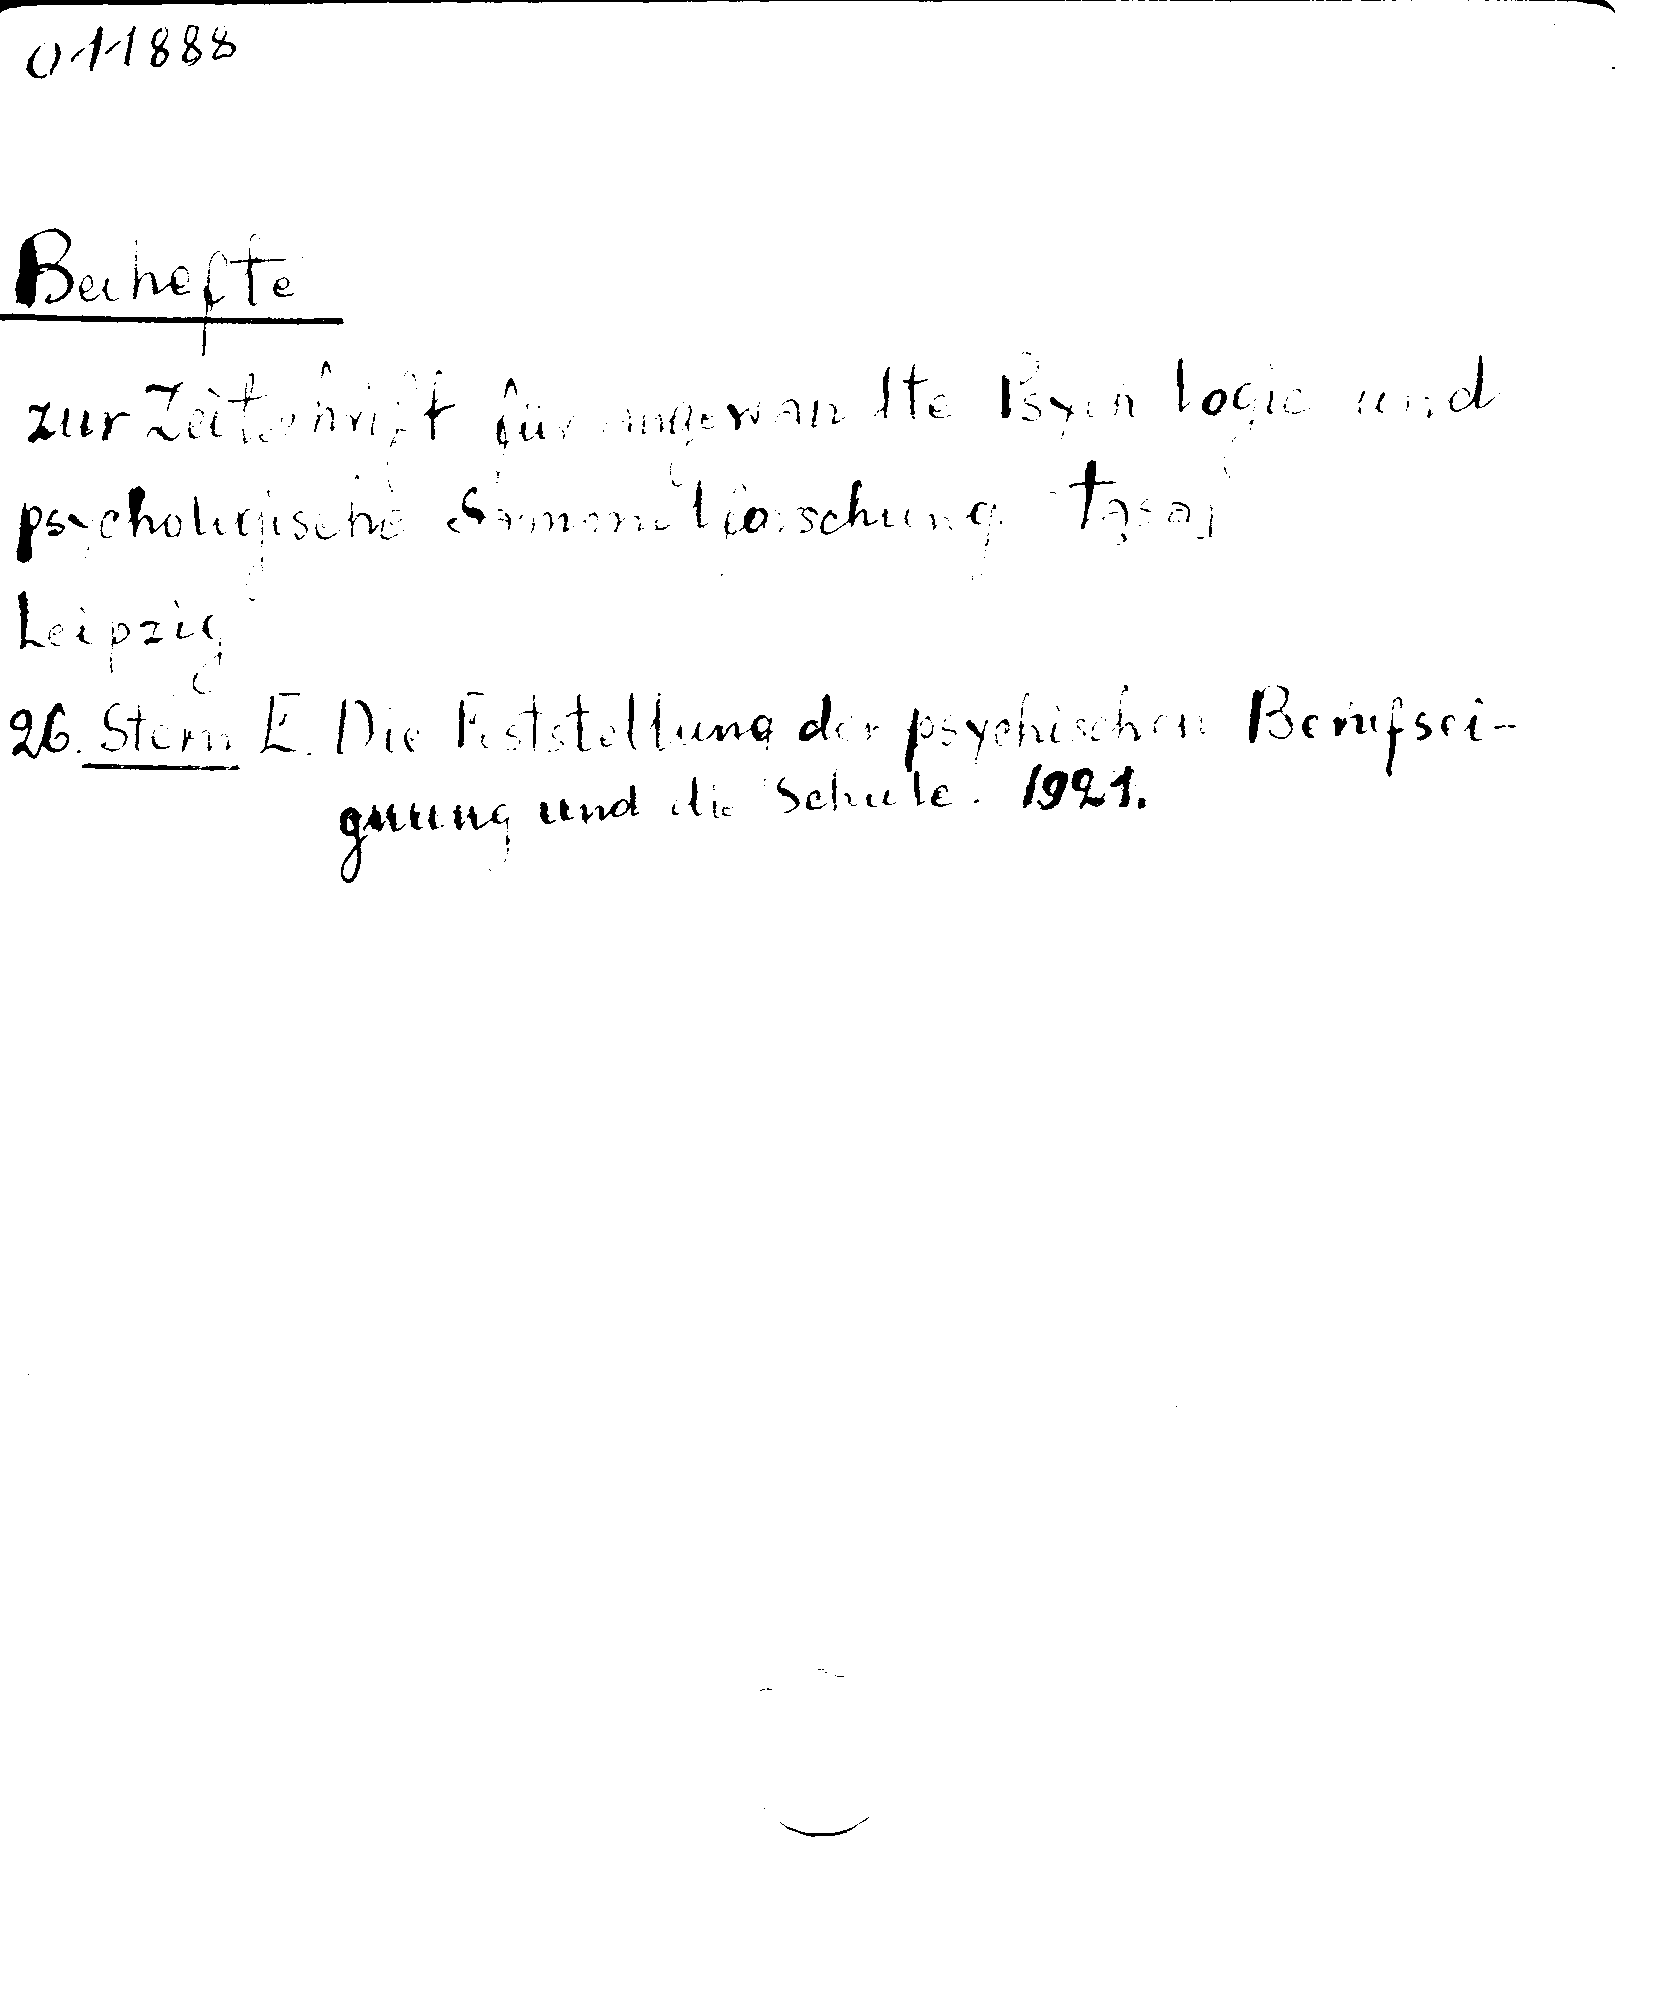 011888
Beihefte
zur Zeitschrift für angewandte Psychologie und
psychologische Sammelforschung
Leipzig
26. Stern E. Die Feststellung der psychischen Berufsei-
gnung und die Schule. 1921.